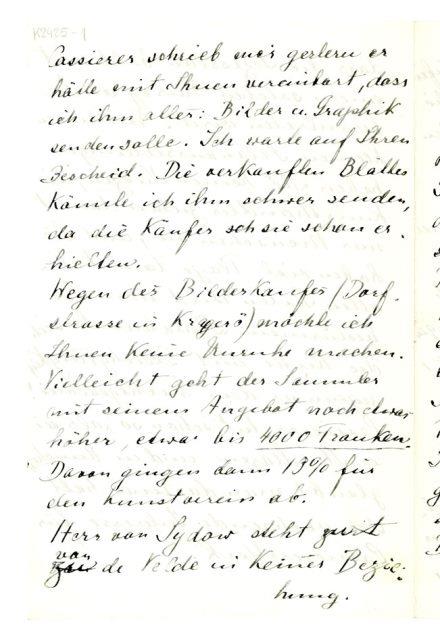 K2425-1
Cassierer schrieb mir gestern er
hätte mit Ihnen vereinbart, dass
ich ihm alles: Bilder u. Graphik
senden solle. Ich warte auf Ihren
Bescheid. Die verkauften Blätter
könnte ich ihm schwer senden,
da die Käufer sie schon er-
hielten.
Wegen des Bilderkaufes (Dorf-
strasse in Kragerö) möchte ich
Ihnen keine Unruhe machen.
Vielleicht geht der Sammler
mit seinem Angebot noch etwas
höher, etwa bis 4000 Franken.
Davon gingen dann 13% für
den Kunstverein ab.
Herr von Sydow steht
van de Velde in keiner Bezie-
hung.